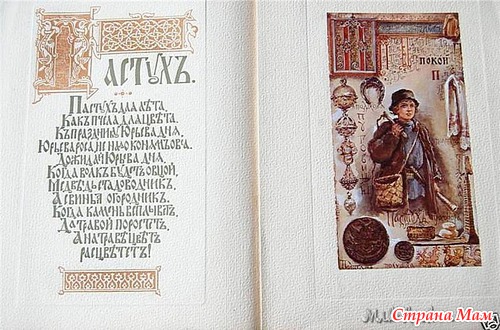 ПАСТУХЪ.
ПАСТУХЪ ДЛЯ ЛѢТА,
КАКЪ ПЧЕЛА ДЛЯ ЦВѢТА.
КЪ ПРАЗДНИКУ ЮРЬЕВА ДНЯ,
ЮРЬЕВА РОСА НЕ НАДО КОНЯМЪ ОВСА.
ДОЖИДАЙ ЮРЬЕВА ДНЯ,
КОГДА ВОЛКЪ БУДЕТЪ ОВЦОЙ,
МЕДВѢДЬ СТАДОВОДНИК,
А СВИНЬЯ ОГОРОДНИК.
КОГДА КАМЕНЬ ВСПЛЫВЕТЪ,
ДА ТРАВОЙ ПОРОСТЕТЪ,
А НА ТРАВѢ ЦВѢТЪ
РАСЦВѢТУТЪ!
ПОКОЙ
П
ПАСТУХЪ
Страна Мам